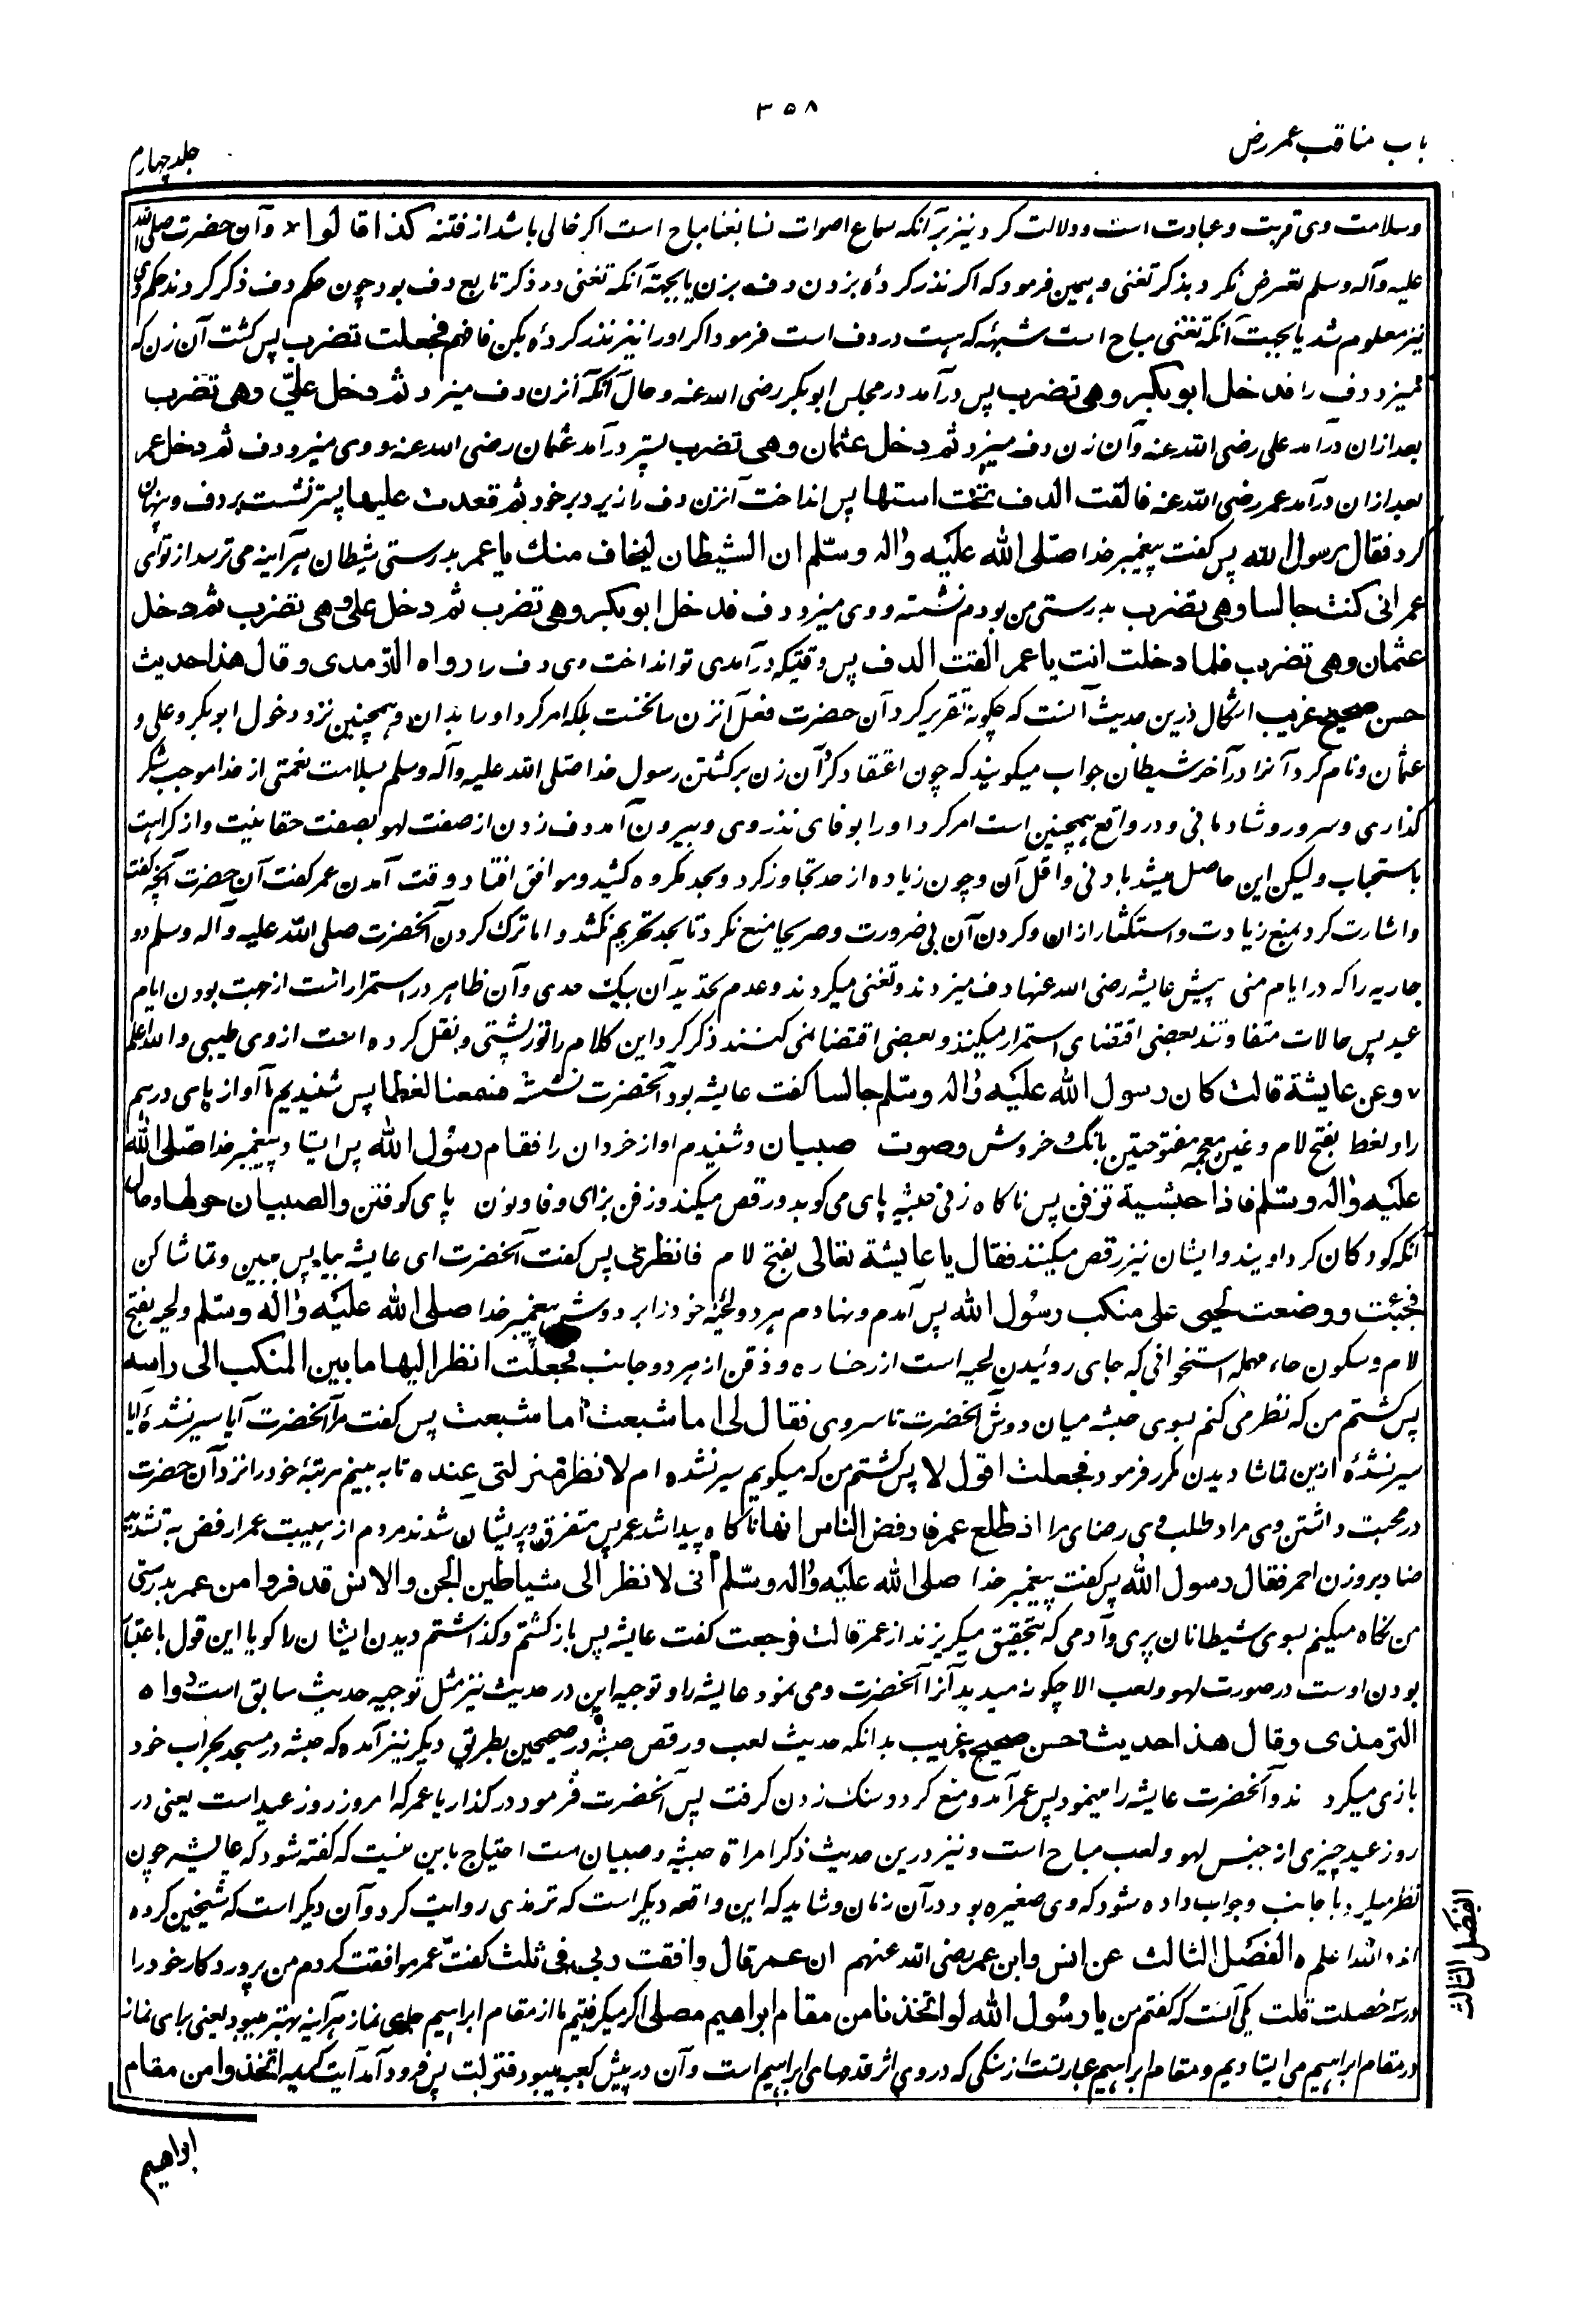 ۳۵۸
باب مناقب عمر رض
جلد چهارم
وسلامت وی قربت و عبادت است و دلالت کرد نیز بر آنکه سماع اصوات نسا بغنا مباح است اکر خالی باشد از فتنه کذا قالوا و آن حضرت صلی الله
علیه وآله وسلم تعرض نکرد بذکر تغنی و همین فرمود که اکر نذر کردۀ بزدن دف بزن یا بجهتۀ آنکه تغنی در ذکر تابع دف بود چون حکم دف ذکر کردند حکم وی
نیز معلوم شد یا بجهت آنکه تغنی مباح است شبهۀ که هست در دف است فرمود اکر اورا نیز نذر کردۀ بکن فافهم فجعلت تضرب پس کشت آن زن که
میزد دف را فدخل ابو بکر وهی تضرب پس درآمد در مجلس ابو بکر رضی الله عنه و حال آنکه آنزن دف میزد ثم دخل علیّ وهی تضرب
بعد ازان درآمد علی رضی الله عنه و آن زن دف میزد ثم دخل عثمان وهی تضرب پستر درآمد عثمان رضی الله عنه و وی میزد دف ثم دخل عمر
بعد ازان درآمد عمر رضی الله عنه فالقت الدف تحت استها پس انداخت آنزن دف را زیر دبر خود ثم قعدت علیها پستر نشست بر دف و پنهان
کرد فقال رسول الله پس کفت پیغمبر خدا صلی الله علیه واله وسلم ان الشیطان لیخاف منک یا عمر بدرستی شیطان هرآینه می ترسد از تو ای
عمر انی کنت جالسا وهی تضرب بدرستی من بودم نشسته و وی میزد دف فدخل ابو بکر وهی تضرب ثم دخل علی وهی تضرب ثم دخل
عثمان وهی تضرب فلما دخلت انت یا عمر القت الدف پس وقتیکه درآمدی تو انداخت وی دف را رواه الترمذی وقال هذا حدیث
حسن صحیح غریب اشکال درین حدیث آنست که چکونه تقریر کرد آن حضرت فعل آنزن را نخست بلکه امر کرد اورا بدان و همچنین نزد دخول ابو بکر و علی و
عثمان و نام کرد آنرا در آخر شیطان جواب میکویند که چون اعتقاد کرد آن زن برکشتن رسول خدا صلی الله علیه وآله وسلم بسلامت نعمتی از خدا موجب شکر
کذاری و سرور و شادمانی و در واقع همچنین است امر کرد اورا بوفای نذر وی و بیرون آمد دف زدن از صفت لهو بصفت حقانیت و از کراهت
باستحباب ولیکن این حاصل میشد بادنی و اقل آن و چون زیاده از حد تجاوز کرد و بحد مکروه کشید و موافق افتاد وقت آمدن عمر کفت آن حضرت آنچه کفت
و اشارت کرد بمنع زیادت و استکثار ازان و کردن آن بی ضرورت و صریحا منع نکرد تا بحد تحریم نکشد و اما ترک کردن آنحضرت صلی الله علیه وآله وسلم دو
جاریه را که در ایام منی پیش عایشه رضی الله عنها دف میزدند و تغنی میکردند و عدم تحدید آن بیک حدی و آن ظاهر در استمرار است از جهت بودن ایام
عید پس حالات متفاوتند بعضی اقتضای استمرار میکنند و بعضی اقتضا نمی کنند ذکر کرد این کلام را تورپشتی و نقل کرده است از وی طیبی والله اعلم
وعن عایشة قالت کان رسول الله علیه واله وسلم جالسا کفت عایشه بود آنحضرت نشسته فسمعنا لغطا پس شنیدیم ما آواز پای درهم
را و لغط بفتح لام و غین معجمه مفتوحتین بانک و خروش وصوت صبیان و شنیدیم اواز خردان را فقام رسول الله پس ایستاد پیغمبر خدا صلی الله
علیه واله وسلم فاذا حبشیة تزفن پس ناکاه زنی حبشیه پای می کوبد و رقص میکند و زفن بزای و فا و نون پای کوفتن والصبیان حولها و حال
آنکه کودکان کرد اویند و ایشان نیز رقص میکنند فقال یا عایشة تعالی بفتح لام فانظری پس کفت آنحضرت ای عایشه بیا پس ببین و تماشا کن
فجئت ووضعت لحیی علی منکب رسول الله پس آمدم و نهادم هر دو لحیۀ خود را بر دوش پیغمبر خدا صلی الله علیه واله وسلم و لحیه بفتح
لام و سکون حاء مهمله استخوانی که جای روئیدن لحیه است از رخساره و ذقن از هر دو جانب فجعلت انظر الیها ما بین المنکب الی راسه
پس کشتم من که نظر می کنم بسوی حبشه میان دوش آنحضرت تا سر وی فقال لی اما شبعت اما شبعت پس کفت مرا آنحضرت آیا سیر نشدۀ آیا
سیر نشدۀ ازین تماشا دیدن مکرر فرمود فجعلت اقول لا پس کشتم من که میکویم سیر نشده ام لانظر منزلتی عنده تا به بینم مرتبۀ خود را نزد آن حضرت
در محبت داشتن وی مرا و طلب وی رضای مرا اذ طلع عمر فارفض الناس عنها ناکاه پیدا شد عمر پس متفرق و پریشان شدند مردم از هیبت عمر ارفض به تشدید
ضاد بر وزن احمر فقال رسول الله پس کفت پیغمبر خدا صلی الله علیه واله وسلم انی لانظر الی شیاطین الجن والانس قد فروا من عمر بدرستی
من نکاه میکنم بسوی شیطانان پری و آدمی که بتحقیق میکریزند از عمر قالت فرجعت کفت عایشه پس باز کشتم و کذاشتم دیدن ایشان را کویا این قول باعتبار
بودن اوست در صورت لهو ولعب الا چکونه میدید آنرا آنحضرت و می نمود عایشه را و توجیه این در حدیث نیز مثل توجیه حدیث سابق است رواه
الترمذی وقال هذا حدیث حسن صحیح غریب بدانکه حدیث لعب و رقص حبشه در صحیحین بطریق دیکر نیز آمده که حبشه در مسجد بحراب خود
بازی میکردند و آنحضرت عایشه را مینمود پس عمر آمد و منع کرد و سنک زدن کرفت پس آنحضرت فرمود درکذار یا عمر که امروز روز عید است یعنی در
روز عید چیزی از جنس لهو ولعب مباح است و نیز درین حدیث ذکر امراة حبشیه و صبیان ست احتیاج باین نیست که کفته شود که عایشه چون
نظر میکرد با جانب و جواب داده شود که وی صغیره بود در آن زمان و شاید که این واقعه دیکر است که ترمذی روایت کرد و آن دیکر است که شیخین کرده
اند والله اعلم الفصل الثالث عن انس وابن عمر رضی الله عنهم ان عمر قال وافقت ربی فی ثلث کفت عمر موافقت کردم من پروردکار خود را
در سه خصلت قلت یکی آنست که کفتم من یا رسول الله لو اتخذنا من مقام ابراهیم مصلی اکر میکرفتیم ما از مقام ابراهیم جای نماز هرآینه بهتر میبود یعنی برای نماز
در مقام ابراهیم می ایستادیم و مقام ابراهیم عبارتست از سنکی که در وی اثر قدمهای ابراهیم است و آن در پیش کعبه میبود فنزلت پس فرود آمد آیت کریمه اتخذوا من مقام
الفصل الثالث
ابراهیم